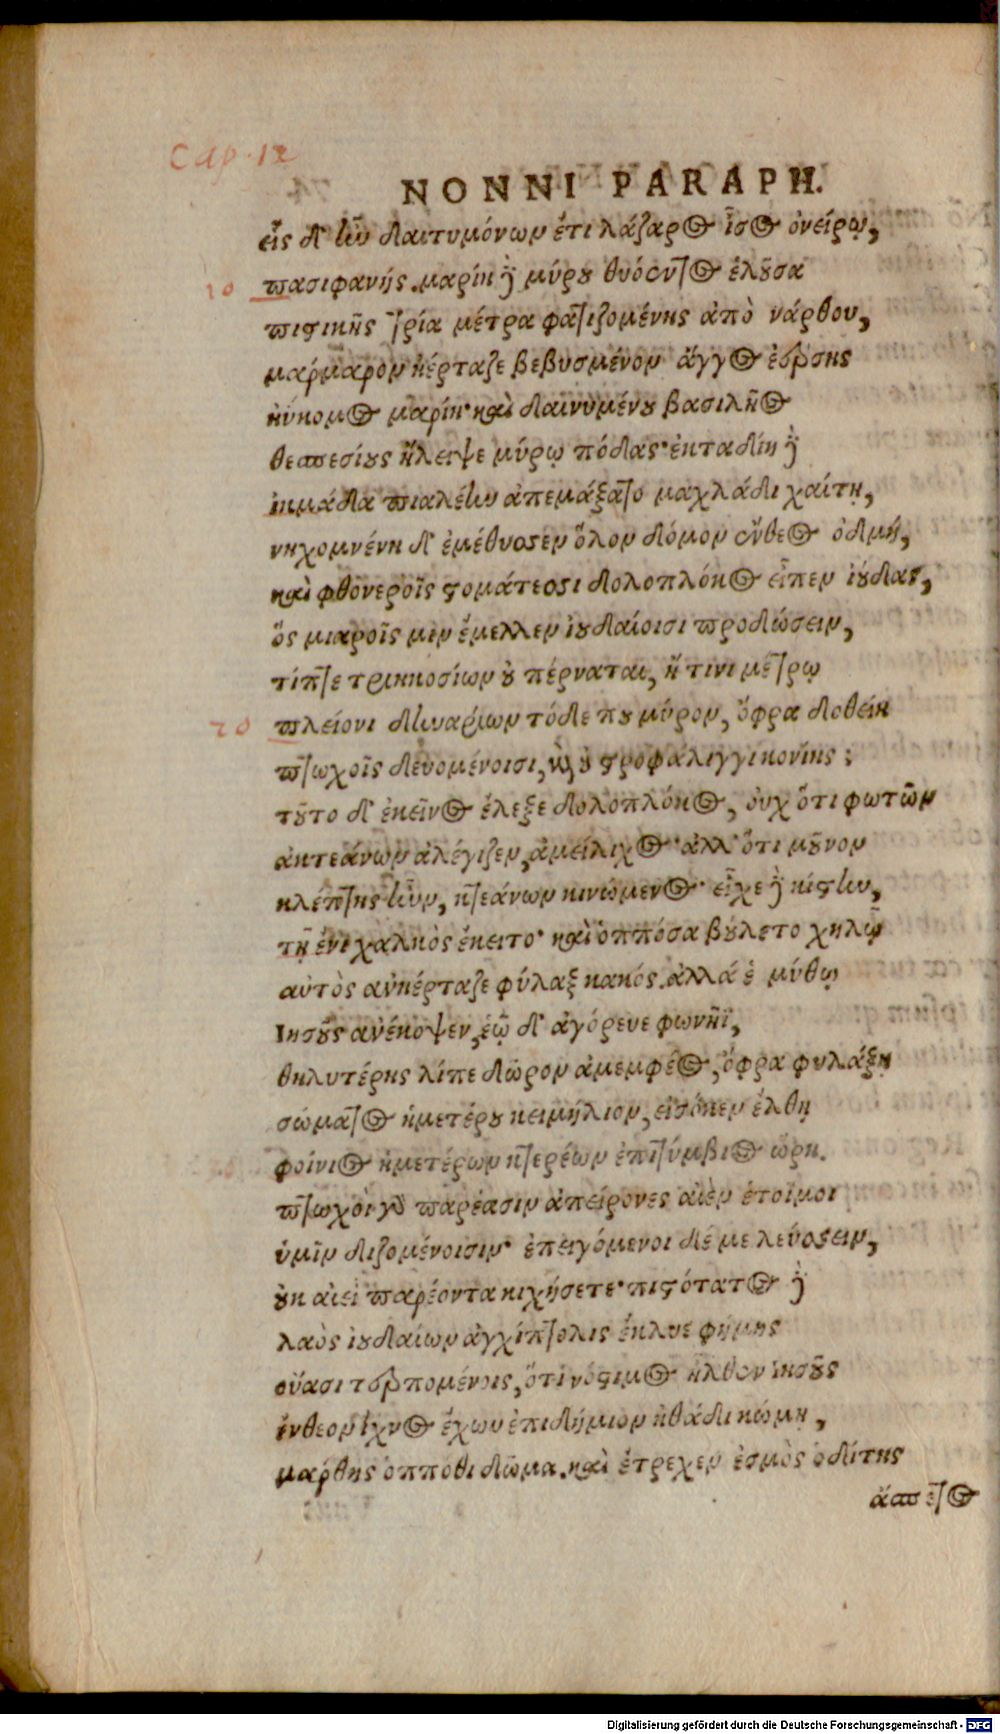 Cap. 12
NONNI PARAPH.
εἷς δ' ἦν δαιτυμόνων ἔτι λάζαρος ἶσος ὀνείρῳ,
10 πασιφανής. μαρίη δὲ μύρου θυόεντος ἑλοῦσα
πιστικῆς τρία μέτρα φατιζομένης ἀπὸ νάρθου,
μάρμαρον ἠέρταζε βεβυσμένον ἄγγος ἐέρσης
ἠύκομος μαρίη· καὶ δαινυμένου βασιλῆος
θεσπεσίους ἤλειψε μύρῳ πόδας· ἐκταδίη δὲ
ἰκμάδα πιαλέην ἀπεμάξατο μαχλάδι χαίτῃ,
νηχομνένη δ' ἐμέθυσσεν ὅλον δόμον εὔθεος ὀδμή,
καὶ φθονεροῖς στομάτεσσι δολοπλόκος εἶπεν ἰούδας,
ὃς μιαροῖς μιν ἔμελλεν ἰουδαίοισι προδώσειν,
τίπτε τριηκοσίων οὐ πέρναται, ἤ τινι μέτρῳ
20 πλείονι δηναρίων τόδε που μύρον, ὄφρα δοθείη
πτωχοῖς δευομένοισι, καὶ οὐ στροφάλιγγι κονίης;
τοῦτο δ' ἐκεῖνος ἔλεξε δολοπλόκος, οὐχ ὅτι φωτῶν
ἀκτεάνων ἀλέγιζεν, ἀμείλιχος· ἀλλ' ὅτι μοῦνον
κλέπτης ἦνν, κτεάνων κινώμενος· εἶχε δὲ κίστην,
τῇ ἔνι χαλκὸς ἔκειτο· καὶ ὁππόσα βούλετο χηλῷ
αὐτὸς ἀνηέρταζε φύλαξ κακός. ἀλλά ἑ μύθῳ
Ιησοῦς ἀνέκοψεν, ἑῷ δ' ἀγόρευε φωνῆϊ,
θηλυτέρης λίπε δῶρον ἀμεμφέος, ὄφρα φυλάξῃ
σώματος ἡμετέρου κειμήλιον, εἰσόκεν ἔλθῃ
φοίνιος ἡμετέρων κτερέων ἐπιτύμβιος ὥρη.
πτωχοὶ γὰρ παρέασιν ἀπείρονες αἰὲν ἑτοῖμοι
ὑμῖν διζομένοισιν· ἐπειγόμενοι δέ με λεύσσειν,
οὐκ αἰεὶ παρέοντα κιχήσετε· πιστότατος δὲ
λαὸς ἰουδαίων ἀγχίπτολις ἔκλυε φήμης
οὔασι τερπομένοις, ὅτι νόστιμος ἦλθεν ἰησοῦς
ἔνθεον ἴχνος ἔχων ἐπιδήμιον ἠθάδι κώμῃ,
μάρθης ὁππόθι δῶμα. καὶ ἔτρεχεν ἑσμὸς ὁδίτης
ἄσπετος
Digitalisierung gefördert durch die Deutsche Forschungsgemeinschaft - DFG